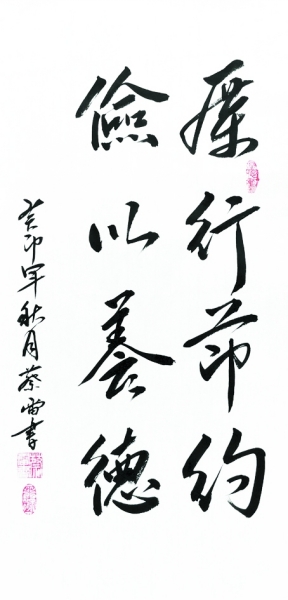 厲行节約
儉以養德
癸卯年秋月蔡雷書